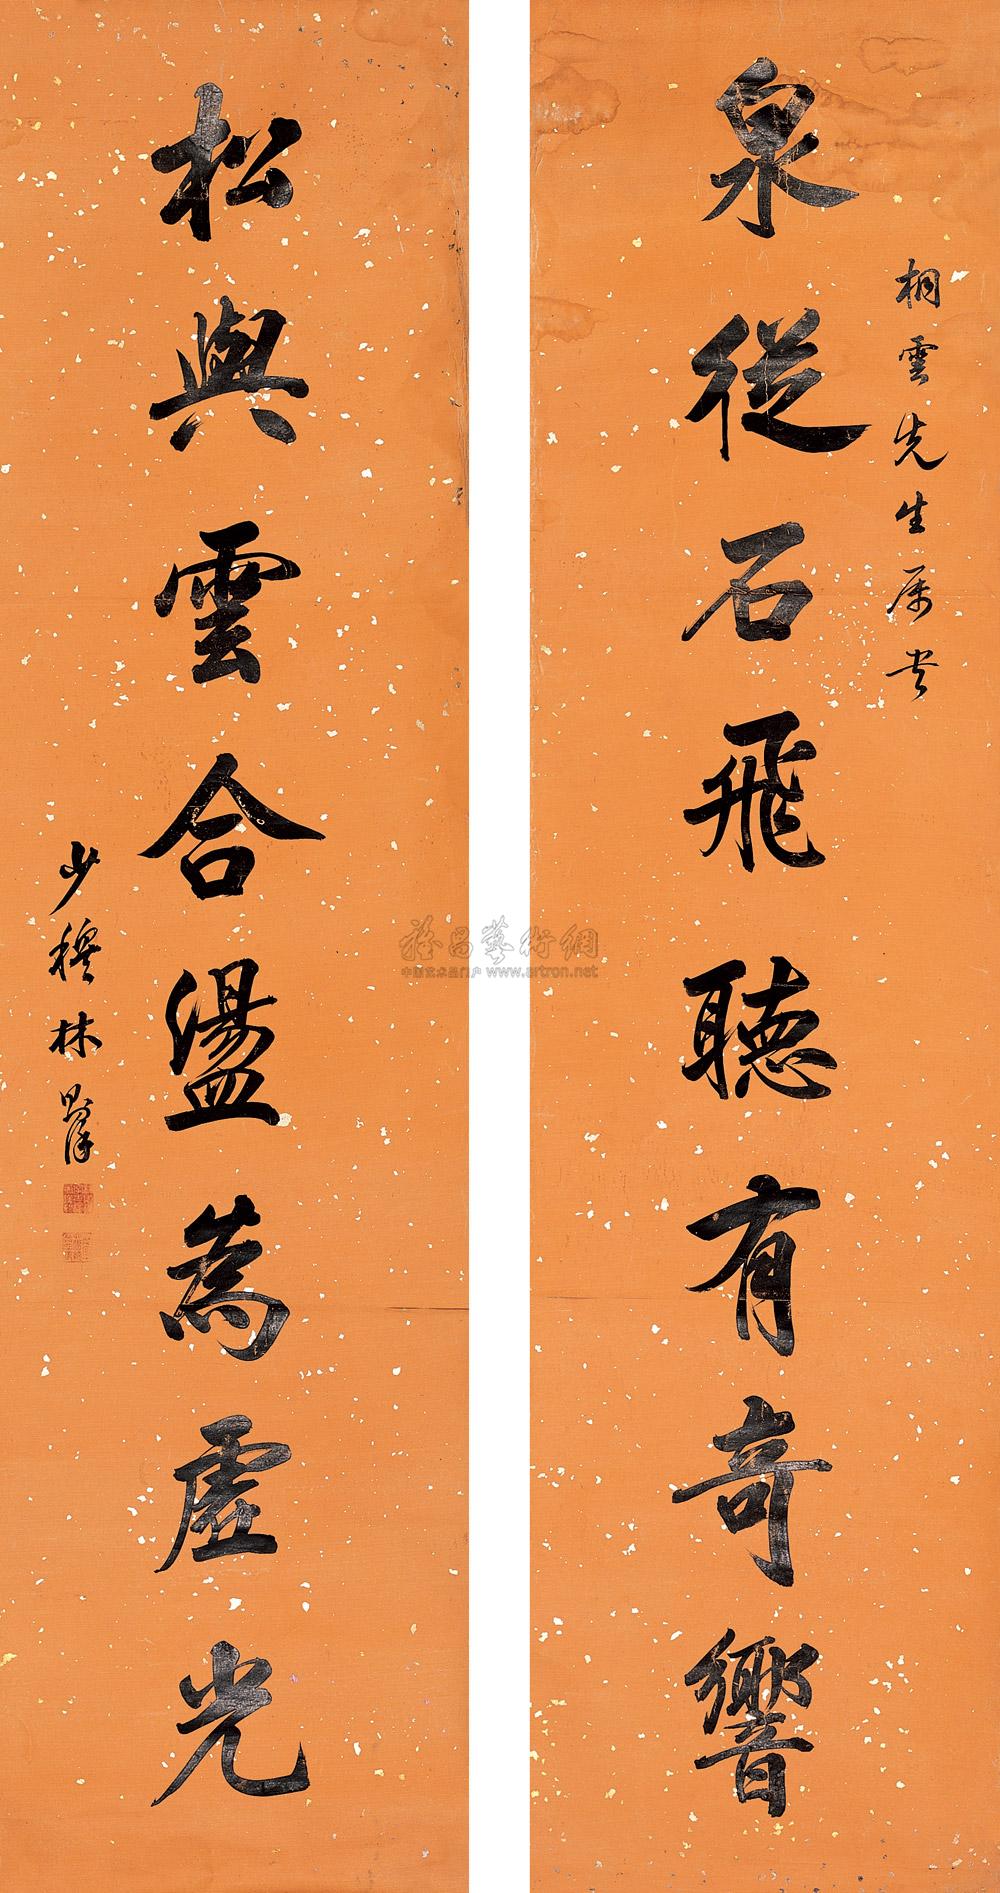 桐雲先生屬書
泉從石飛聽有奇響
松與雲合盪為虛光
少穆林則徐
雅昌藝術網
中国艺术品门户 www.artron.net